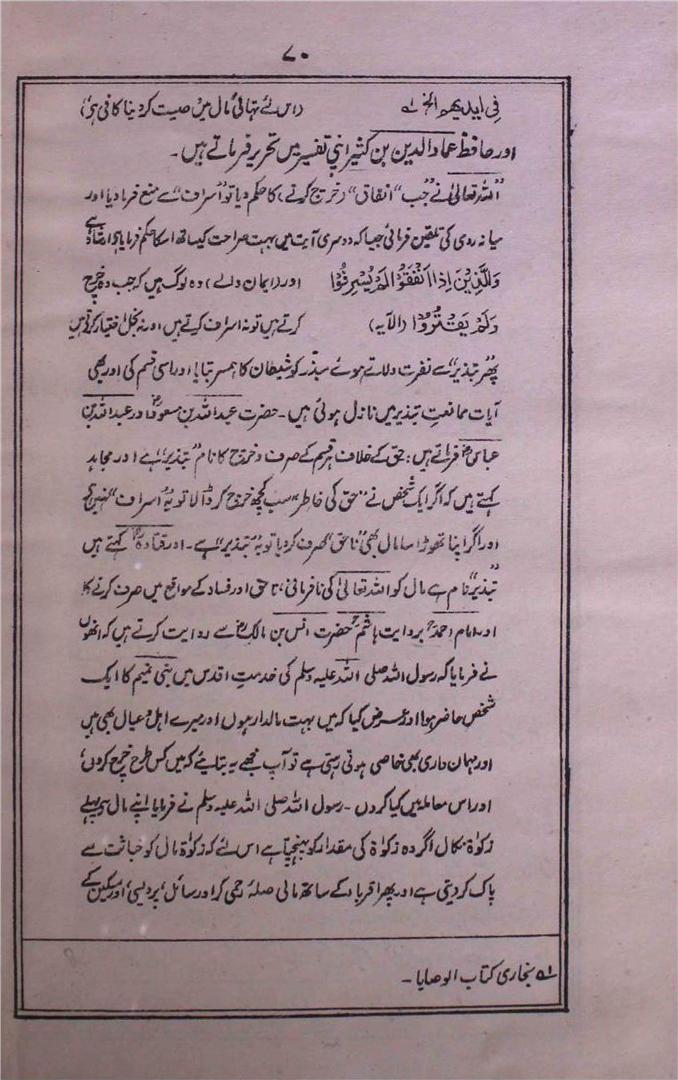 ۷۰
فی ایدیھم الخ ؎۱ (اس لئے تہائی مال میں وصیت کر دینا کافی ہے)
اور حافظ عماد الدین بن کثیر اپنی تفسیر میں تحریر فرماتے ہیں۔
"اللہ تعالیٰ نے جب "انفاق" (خرچ کرنے) کا حکم دیا تو "اسراف" سے منع فرما دیا اور
میانہ روی کی تلقین فرمائی جیسا کہ دوسری آیت میں بہت صراحت کیساتھ اسکا حکم فرمایا ہے ارشاد ہے
وَالَّذِیْنَ اِذَا اَنْفَقُوْا لَمْ یُسْرِفُوْا اور (ایمان والے) وہ لوگ ہیں کہ جب وہ خرچ
وَلَمْ یَقْتُرُوْا (الآیہ) کرتے ہیں تو نہ اسراف کرتے ہیں اور نہ بخل اختیار کرتے ہیں
پھر "تبذیر" سے نفرت دلاتے ہوئے مبذّر کو شیطان کا ہمسر بتایا اور اسی قسم کی اور بھی
آیات ممانعتِ تبذیر میں نازل ہوئی ہیں۔ حضرت عبداللہ بن مسعودؓ اور عبداللہ بن
عباسؓ فرماتے ہیں: حق کے خلاف ہر قسم کے صرف و خرچ کا نام "تبذیر" ہے اور مجاہد
کہتے ہیں کہ اگر ایک شخص نے "حق کی خاطر" سب کچھ خرچ کر ڈالا تو یہ "اسراف" نہیں ہے
اور اگر اپنا تھوڑا سا مال بھی "ناحق" صرف کر دیا تو یہ "تبذیر" ہے۔ اور قتادہؓ کہتے ہیں
"تبذیر" نام ہے مال کو اللہ تعالیٰ کی نافرمانی، ناحق اور فساد کے مواقع میں صرف کرنے کا
اور امام احمدؒ بروایت ہاشمؒ حضرت انس بن مالکؓ سے روایت کرتے ہیں کہ انھوں
نے فرمایا کہ رسول اللہ صلی اللہ علیہ وسلم کی خدمتِ اقدس میں بنی تمیم کا ایک
شخص حاضر ہوا اور عرض کیا کہ میں بہت مالدار ہوں اور میرے اہل و عیال بھی ہیں
اور مہمان داری بھی خاصی ہوتی رہتی ہے تو آپ مجھے یہ بتایئے کہ میں کس طرح خرچ کروں،
اور اس معاملہ میں کیا کروں۔ رسول اللہ صلی اللہ علیہ وسلم نے فرمایا اپنے مال سے پہلے
زکوٰۃ نکال اگر وہ زکوٰۃ کی مقدار کو پہنچتا ہے اس لئے کہ زکوٰۃ مال کو خباثت سے
پاک کر دیتی ہے اور پھر اقرباء کے ساتھ مالی صلہ رحمی کر اور سائل، پردیسی، اور مسکین کے
؎۱ بخاری کتاب الوصایا۔